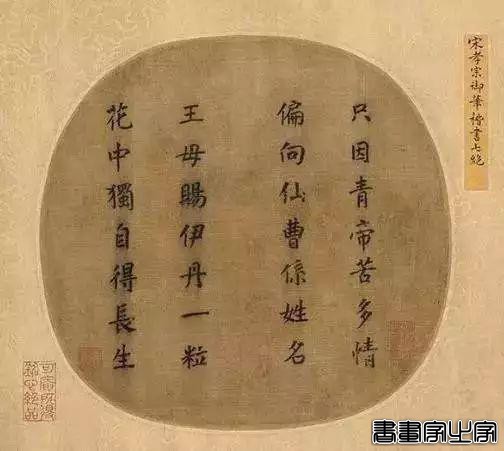 宋孝宗御筆楷書七絶
只因青帝苦多情
偏向仙曹係姓名
王母賜伊丹一粒
花中獨自得長生
書畫家之家